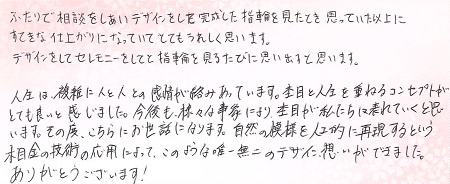 ふたりで相談をしあいデザインをして完成した指輪を見たとき思っていた以上に
すてきな仕上がりになっていてとてもうれしく思います。
デザインをしてセレモニーをしてと指輪を見るたびに思い出すと思います。
人生は、複雑に人と人との感情が絡みあっています。杢目と人生を重ねるコンセプトが
とても良いと感じました。今後も、様々な事象により杢目が私たちに表れていくと思
います。その度、こちらにお世話になります。自然の模様を人工的に再現するという
木目金の技術の応用によって、このような唯一無二のデザイン、想いができました。
ありがとうございます!